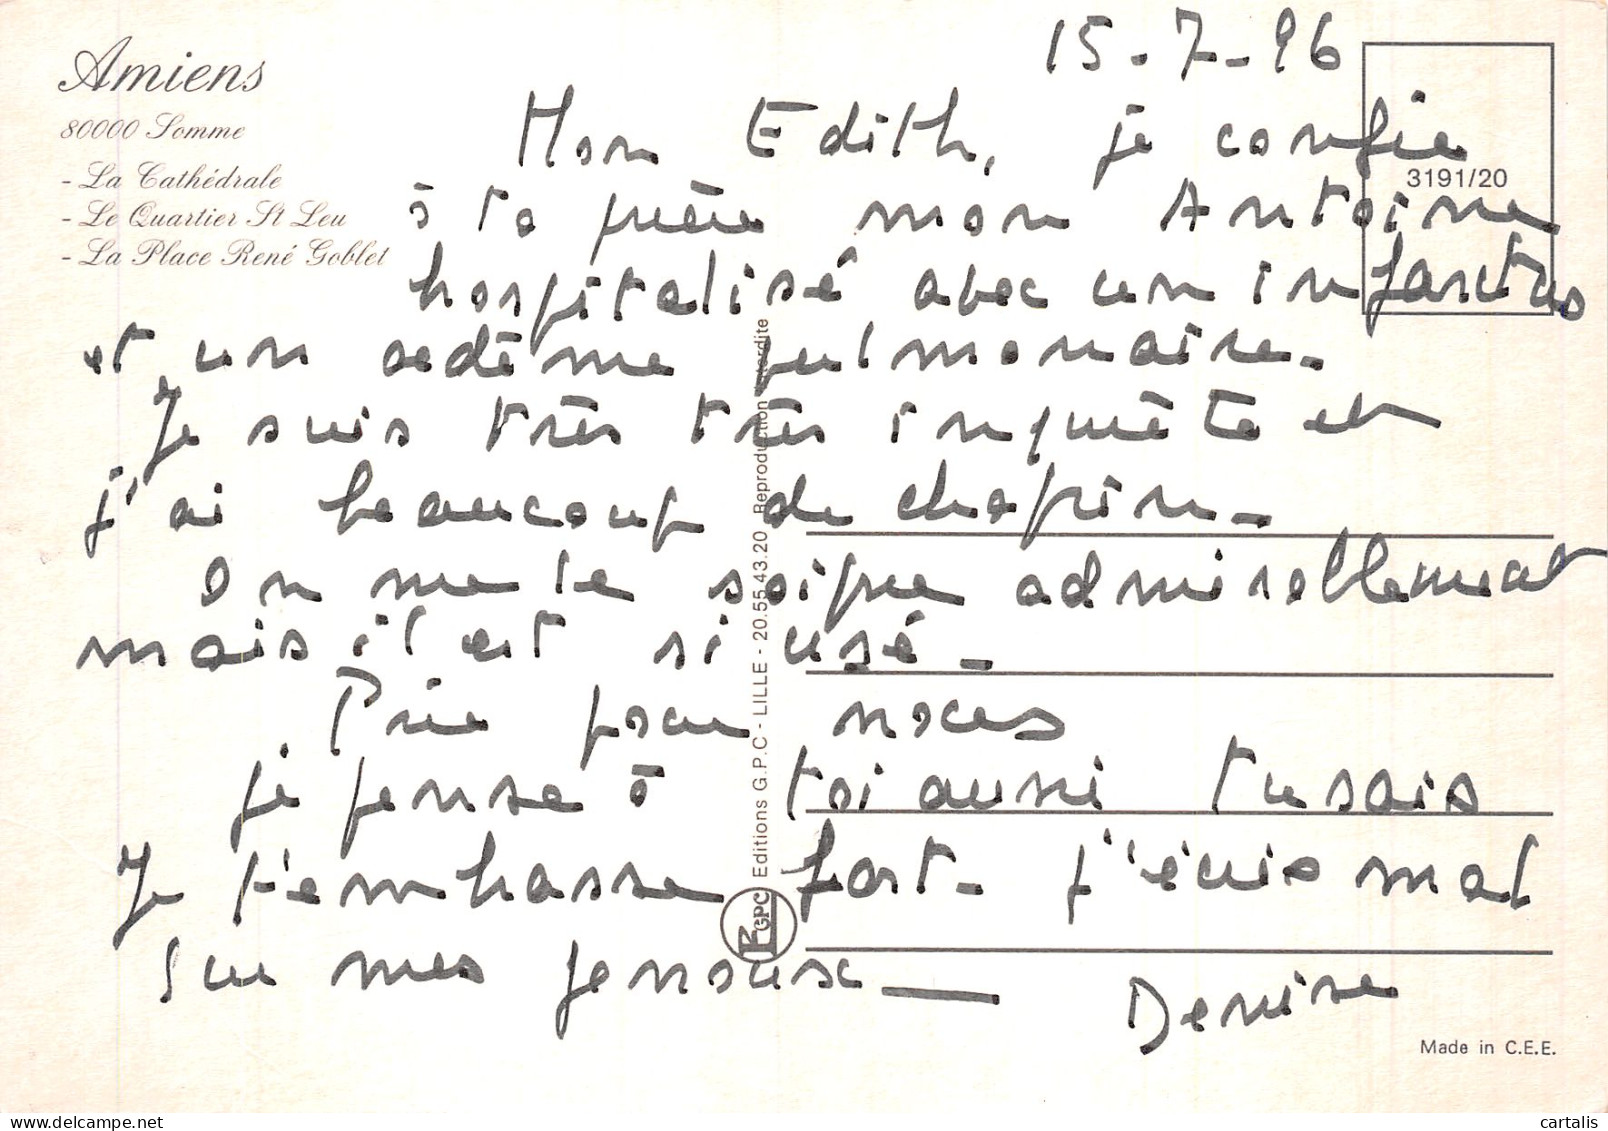 15-7-96
Amiens
80000 Somme
- La Cathédrale
- Le Quartier St Leu
- La Place René Goblet
3191/20
Mon Edith, je confie
à ta prière mon Antoine
hospitalisé avec un infarctus
et un oedème pulmonaire.
Je suis très très inquiète et
j'ai beaucoup de chagrin.
On me le soigne admirablement
mais il est si usé.
Prie pour nous
je pense à toi aussi tu sais
Je t'embrasse fort. J'écris mal
sur mes genoux
Denise
Editions G.P.C - LILLE - 20.55.43.20 Reproduction interdite
GPC
Made in C.E.E.
cartalis
delcampe.net